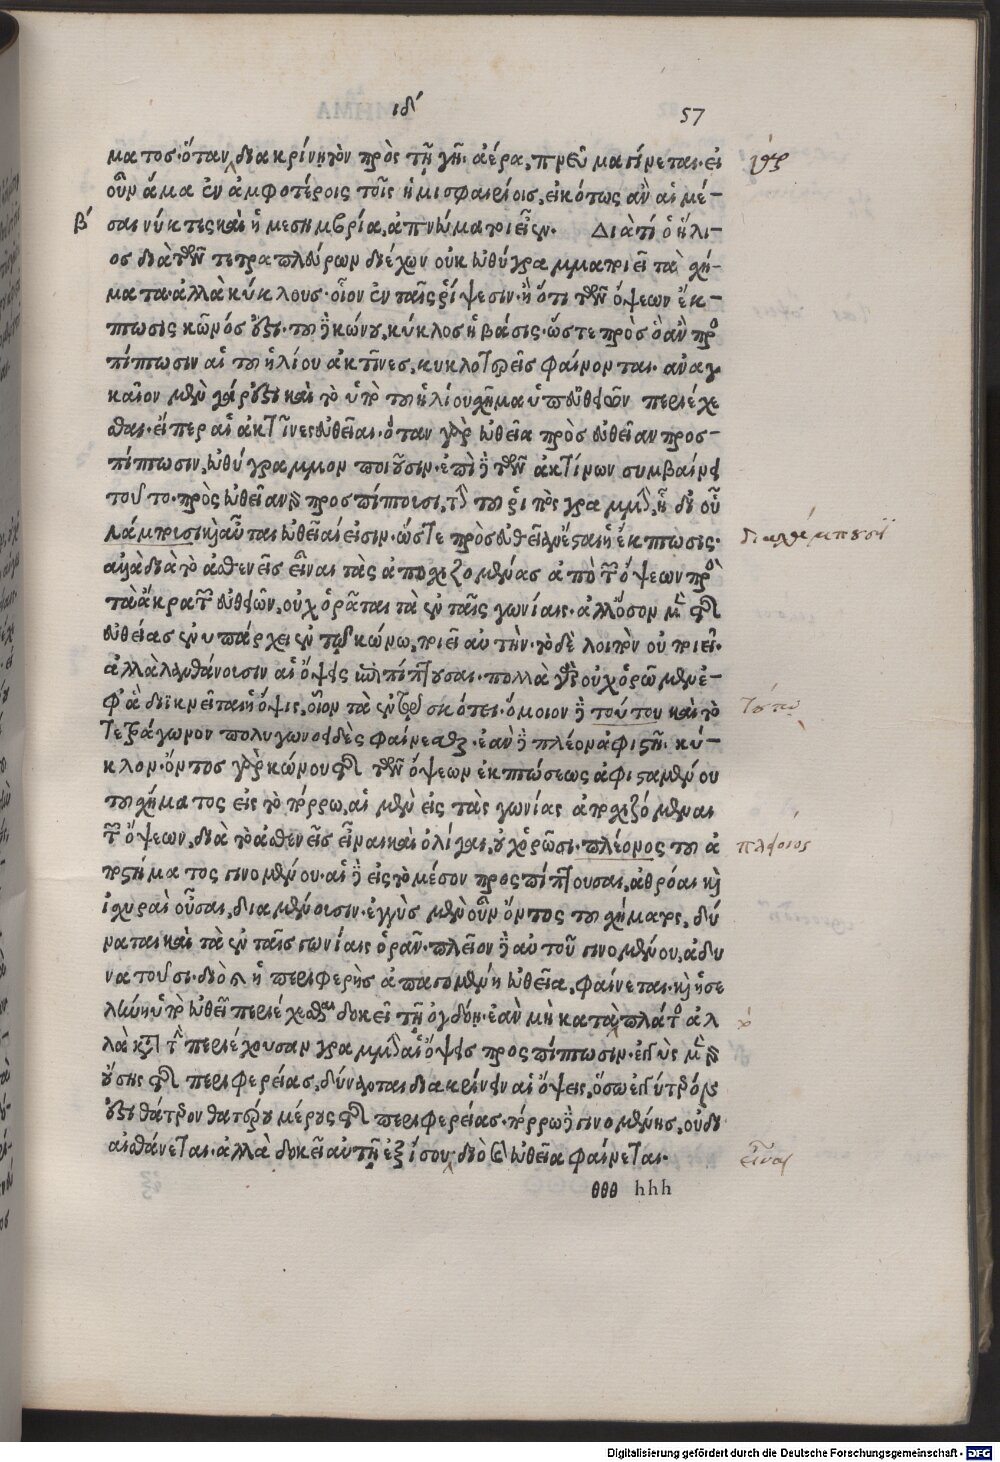 ιδ´ 57
ματος· ὅταν διακρίνῃ τὸν πρὸς τῇ γῇ ἀέρα, πνεῦμα γίνεται· εἰ
οὖν ἅμα ἐν ἀμφοτέροις τοῖς ἡμισφαιρίοις, εἰκότως ἂν αἱ μέ-
β´ σαι νύκτες καὶ ἡ μεσημβρία, ἀπνεύματοι εἶεν. Διὰ τί ὁ ἥλι-
ος διὰ τῶν τετραπλεύρων διέχων οὐκ εὐθύγραμμα ποιεῖ τὰ χή-
ματα ἀλλὰ κύκλους· οἷον ἐν ταῖς ῥίψεσιν· ἢ ὅτι τῶν ὄψεων ἔκ-
πτωσις κῶνός ἐστι· τοῦ δὲ κώνου, κύκλος ἡ βάσις· ὥστε πρὸς ὃ ἂν προσ
πίπτωσιν αἱ τοῦ ἡλίου ἀκτῖνες, κυκλοτερεῖς φαίνονται. ἀναγ
καῖον μὲν γάρ ἐστι καὶ τὸ ὑπὸ τοῦ ἡλίου χῆμα ὑπ' εὐθειῶν περιέχε
σθαι· εἴπερ αἱ ἀκτῖνες εὐθεῖαι· ὅταν γὰρ εὐθεῖα πρὸς εὐθεῖαν προσ-
πίπτωσιν, εὐθύγραμμον ποιοῦσιν· ἐπὶ δὲ τῶν ἀκτίνων συμβαίνει
τοῦτο· πρὸς εὐθεῖαν γὰρ προσπίπτουσι, τὴν τοῦ ῥιπὸς γραμμὴν, ᾗ δι' οὗ
λάμπουσι καὶ αὗται εὐθεῖαί εἰσιν· ὥστε πρὸς εὐθεῖαν ἔσται ἡ ἔκπτωσις· διαλάμπουσι
ἀλλὰ διὰ τὸ ἀσθενεῖς εἶναι τὰς ἀποχιζομένας ἀπὸ τῶν ὄψεων πρὸς
τὰ ἄκρα τῶν εὐθειῶν, οὐχ ὁρᾶται τὰ ἐν ταῖς γωνίαις· ἀλλ' ὅσον μὲν τῆς
εὐθείας ἐνυπάρχει ἐν τῷ κώνῳ, ποιεῖ αὐτήν· τὸ δὲ λοιπὸν οὐ ποιεῖ·
ἀλλὰ λανθάνουσιν αἱ ὄψεις ἐπιπίπτουσαι· πολλὰ γὰρ οὐχ ὁρῶμεν ἐ-
φ' ἃ διϊκνεῖται ἡ ὄψις, οἷον τὰ ἐν τῷ σκότει· ὅμοιον δὲ τούτου καὶ τὸ τούτῳ
τετράγωνον πολυγωνοειδὲς φαίνεσθαι· ἐὰν δὲ πλέον ἀφιστῇ· κύ-
κλον· ὄντος γὰρ κώνου τῆς τῶν ὄψεων ἐκπτώσεως ἀφισταμένου
τοῦ χήματος εἰς τὸ πόρρω, αἱ μὲν εἰς τὰς γωνίας ἀποχιζόμεναι
τῶν ὄψεων, διὰ τὸ ἀσθενεῖς εἶναι καὶ ὀλίγαι, οὐχ ὁρῶσι· πλέονος τοῦ ἀ πλείονος
ποστήματος γινομένου· αἱ δὲ εἰς τὸ μέσον προςπίπτουσαι, ἀθρόαι καὶ
ἰχυραὶ οὖσαι, διαμένουσιν· ἐγγὺς μὲν οὖν ὄντος τοῦ χήματος, δύ
νανται καὶ τὰ ἐν ταῖς γωνίαις ὁρᾶν· πλεῖον δὲ αὐτοῦ γινομένου, ἀδυ
νατοῦσι· διὸ καὶ ἡ περιφερὴς ἀπαγομένη εὐθεῖα, φαίνεται· καὶ ἡ σε
λήνη ὑπὸ εὐθειῶν περιέχεσθαι δοκεῖ τῇ ὀγδόῃ· ἐὰν μὴ κατὰ πλάτος ἀλ
λὰ κατὰ τὴν περιέχουσαν γραμμὴν αἱ ὄψεις προςπίπτωσιν· ἐγγὺς μὲν γὰρ
οὔσης τῆς περιφερείας, δύνανται διακρίνειν αἱ ὄψεις, ὅσῳ ἐγγύτερόν
ἐστι θάτερον θατέρου μέρους τῆς περιφερείας· πόρρω δὲ γινομένης, οὐ δι
αισθάνεται· ἀλλὰ δοκεῖ αὐτῇ ἐξ ἴσου· διὸ καὶ εὐθεῖα φαίνεται. εἶναι
θθθ hhh
Digitalisierung gefördert durch die Deutsche Forschungsgemeinschaft - DFG